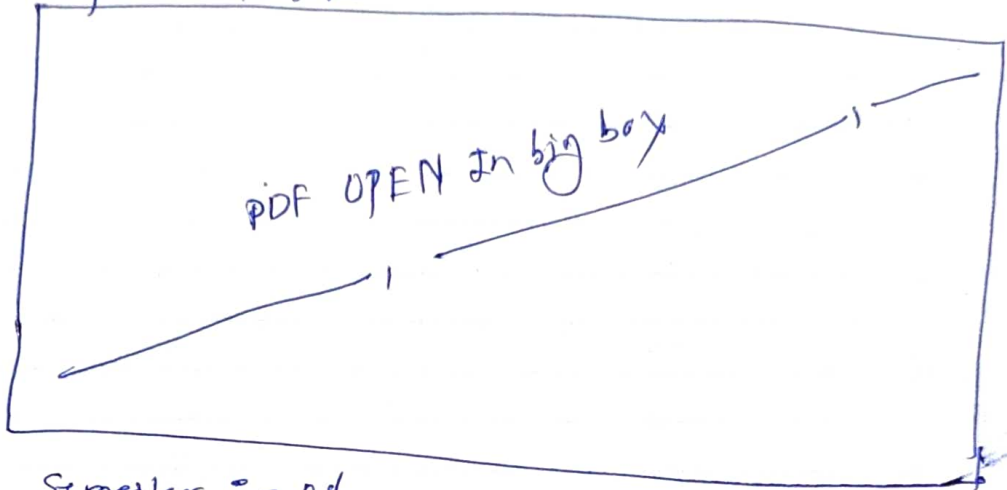 PDF OPEN In big box